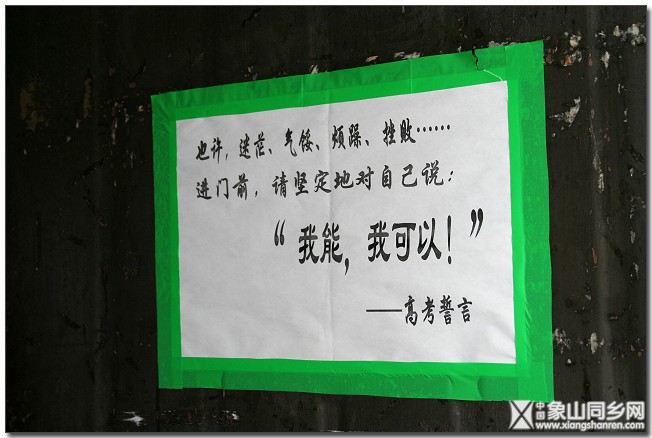 也许，迷茫、气馁、烦躁、挫败……
进门前，请坚定地对自己说：
“我能，我可以！”
——高考誓言
中国象山同乡网
www.xiangshanren.com